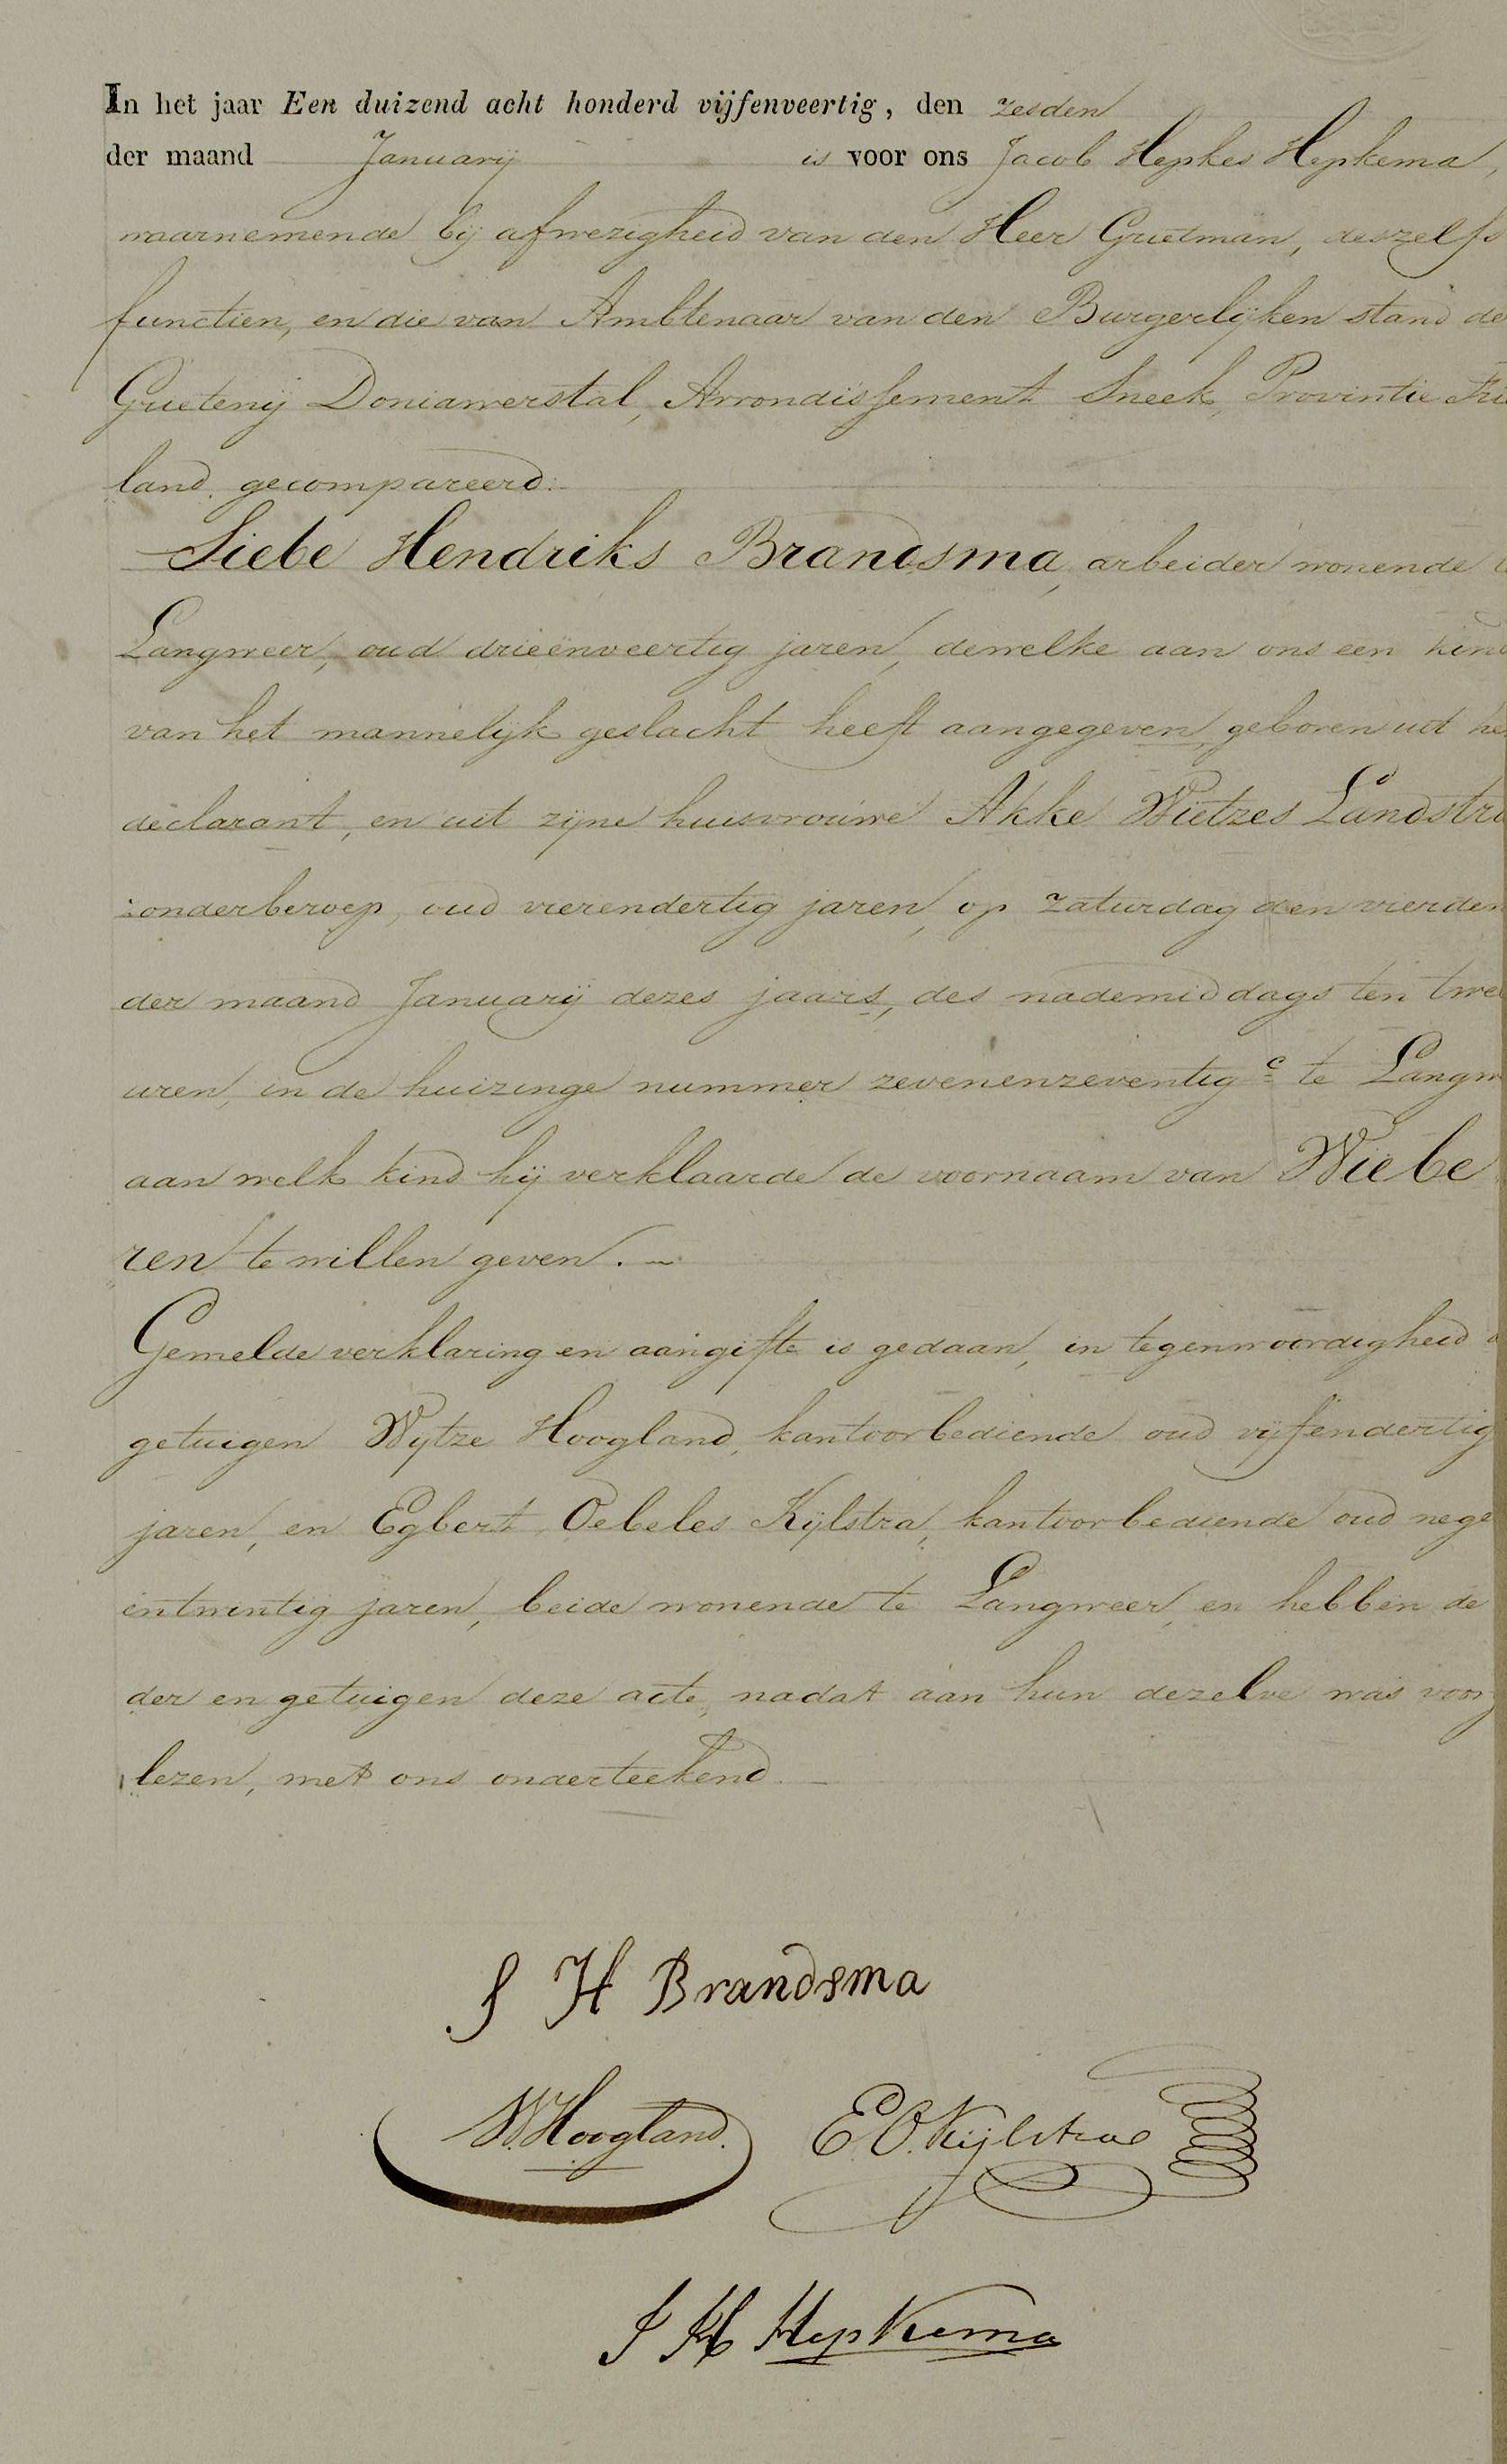 In het jaar Een duizend acht honderd vijfenveertig, den zesden
der maand Januarij is voor ons Jacob Hepkes Hepkema,
waarnemende bij afwezigheid van den Heer Grietman, deszelfs
functien, en die van Ambtenaar van den Burgerlijken stand de
Grietenij Doniawerstal, Arrondissement Sneek, Provintie Frie
land, gecompareerd:
Siebe Hendriks Brandsma, arbeider wonende
Langweer, oud drieënveertig jaren, dewelke aan ons een kind
van het mannelijk geslacht heeft aangegeven, geboren uit he
declarant, en uit zijne huisvrouwe Akke Wietzes Landstra
zonder beroep, oud vierendertig jaren, op zaturdag den vierden
der maand Januarij dezes jaars, des nademiddags ten twee
uren, in de huizinge nummer zevenenzeventig c te Langw
aan welk kind hij verklaarde de voornaam van Wiebe
ren te willen geven.
Gemelde verklaring en aangifte is gedaan, in tegenwoordigheid d
getuigen Wytze Hoogland, kantoorbediende oud vijfendertig
jaren, en Egbert Oebeles Kijlstra, kantoorbediende oud nege
entwintig jaren, beide wonende te Langweer, en hebben de
der en getuigen deze acte, nadat aan hun dezelve was voorg
lezen, met ons onderteekend.
S H Brandsma
W. Hoogland. E. O. Kijlstra
J H Hepkema